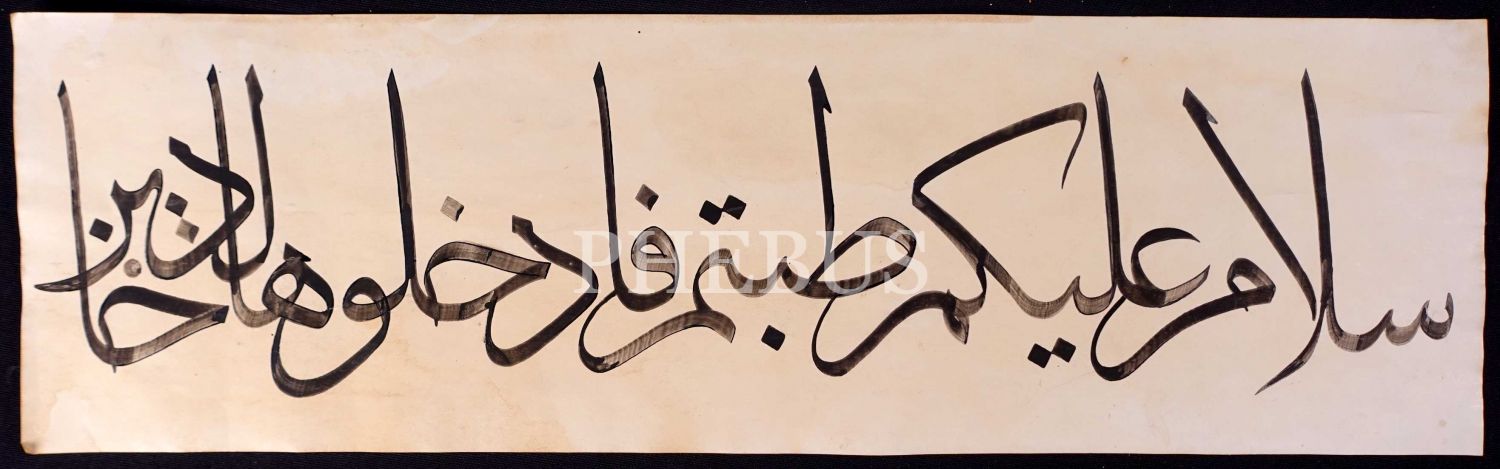 سلام عليكم طبتم فادخلوها خالدين
PHEBUS